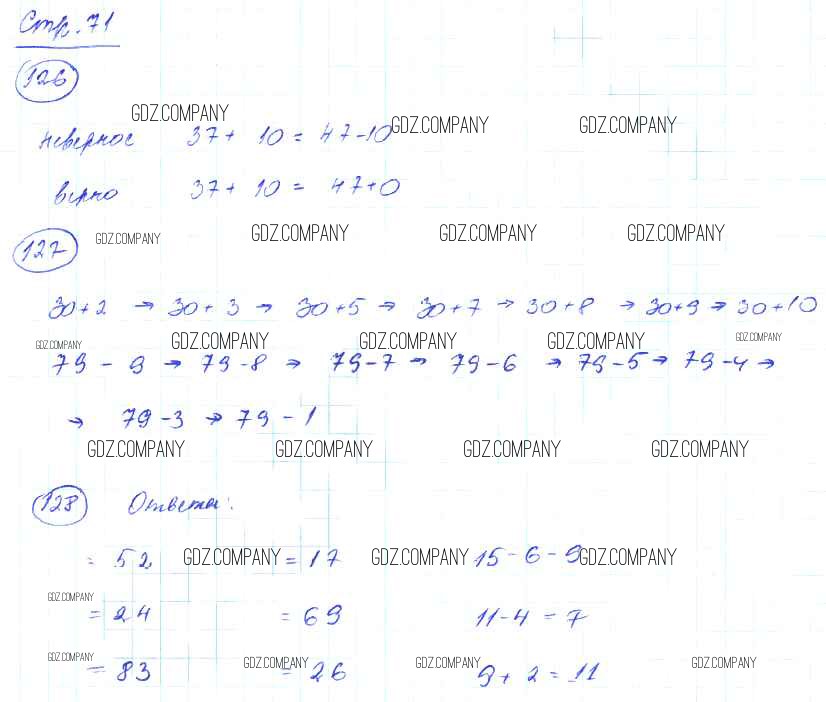 Стр. 71
126
GDZ.COMPANY
GDZ.COMPANY GDZ.COMPANY
неверное 37 + 10 = 47 - 10
верно 37 + 10 = 47 + 0
127 GDZ.COMPANY GDZ.COMPANY GDZ.COMPANY GDZ.COMPANY
30 + 2 → 30 + 3 → 30 + 5 → 30 + 7 → 30 + 8 → 30 + 9 → 30 + 10
GDZ.COMPANY GDZ.COMPANY GDZ.COMPANY GDZ.COMPANY GDZ.COMPANY
79 - 9 → 79 - 8 → 79 - 7 → 79 - 6 → 79 - 5 → 79 - 4 →
→ 79 - 3 → 79 - 1
GDZ.COMPANY GDZ.COMPANY GDZ.COMPANY GDZ.COMPANY
128 Ответы:
= 52 GDZ.COMPANY = 17 GDZ.COMPANY 15 - 6 - 9 GDZ.COMPANY
GDZ.COMPANY
= 24 = 69 11 - 4 = 7
GDZ.COMPANY GDZ.COMPANY GDZ.COMPANY GDZ.COMPANY
= 83 = 26 9 + 2 = 11